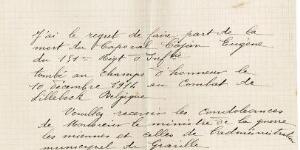 J'ai le regret de faire part de la
mort du Caporal Cajan Eugène
du 151e Régt d'Inf
tombé au champs d'honneur le
10 décembre 1914 au Combat de
Zillebeck Belgique
Veuillez recevoir les condoléances
de Monsieur le ministre de la guerre
les miennes et celles de l'administration
municipal de